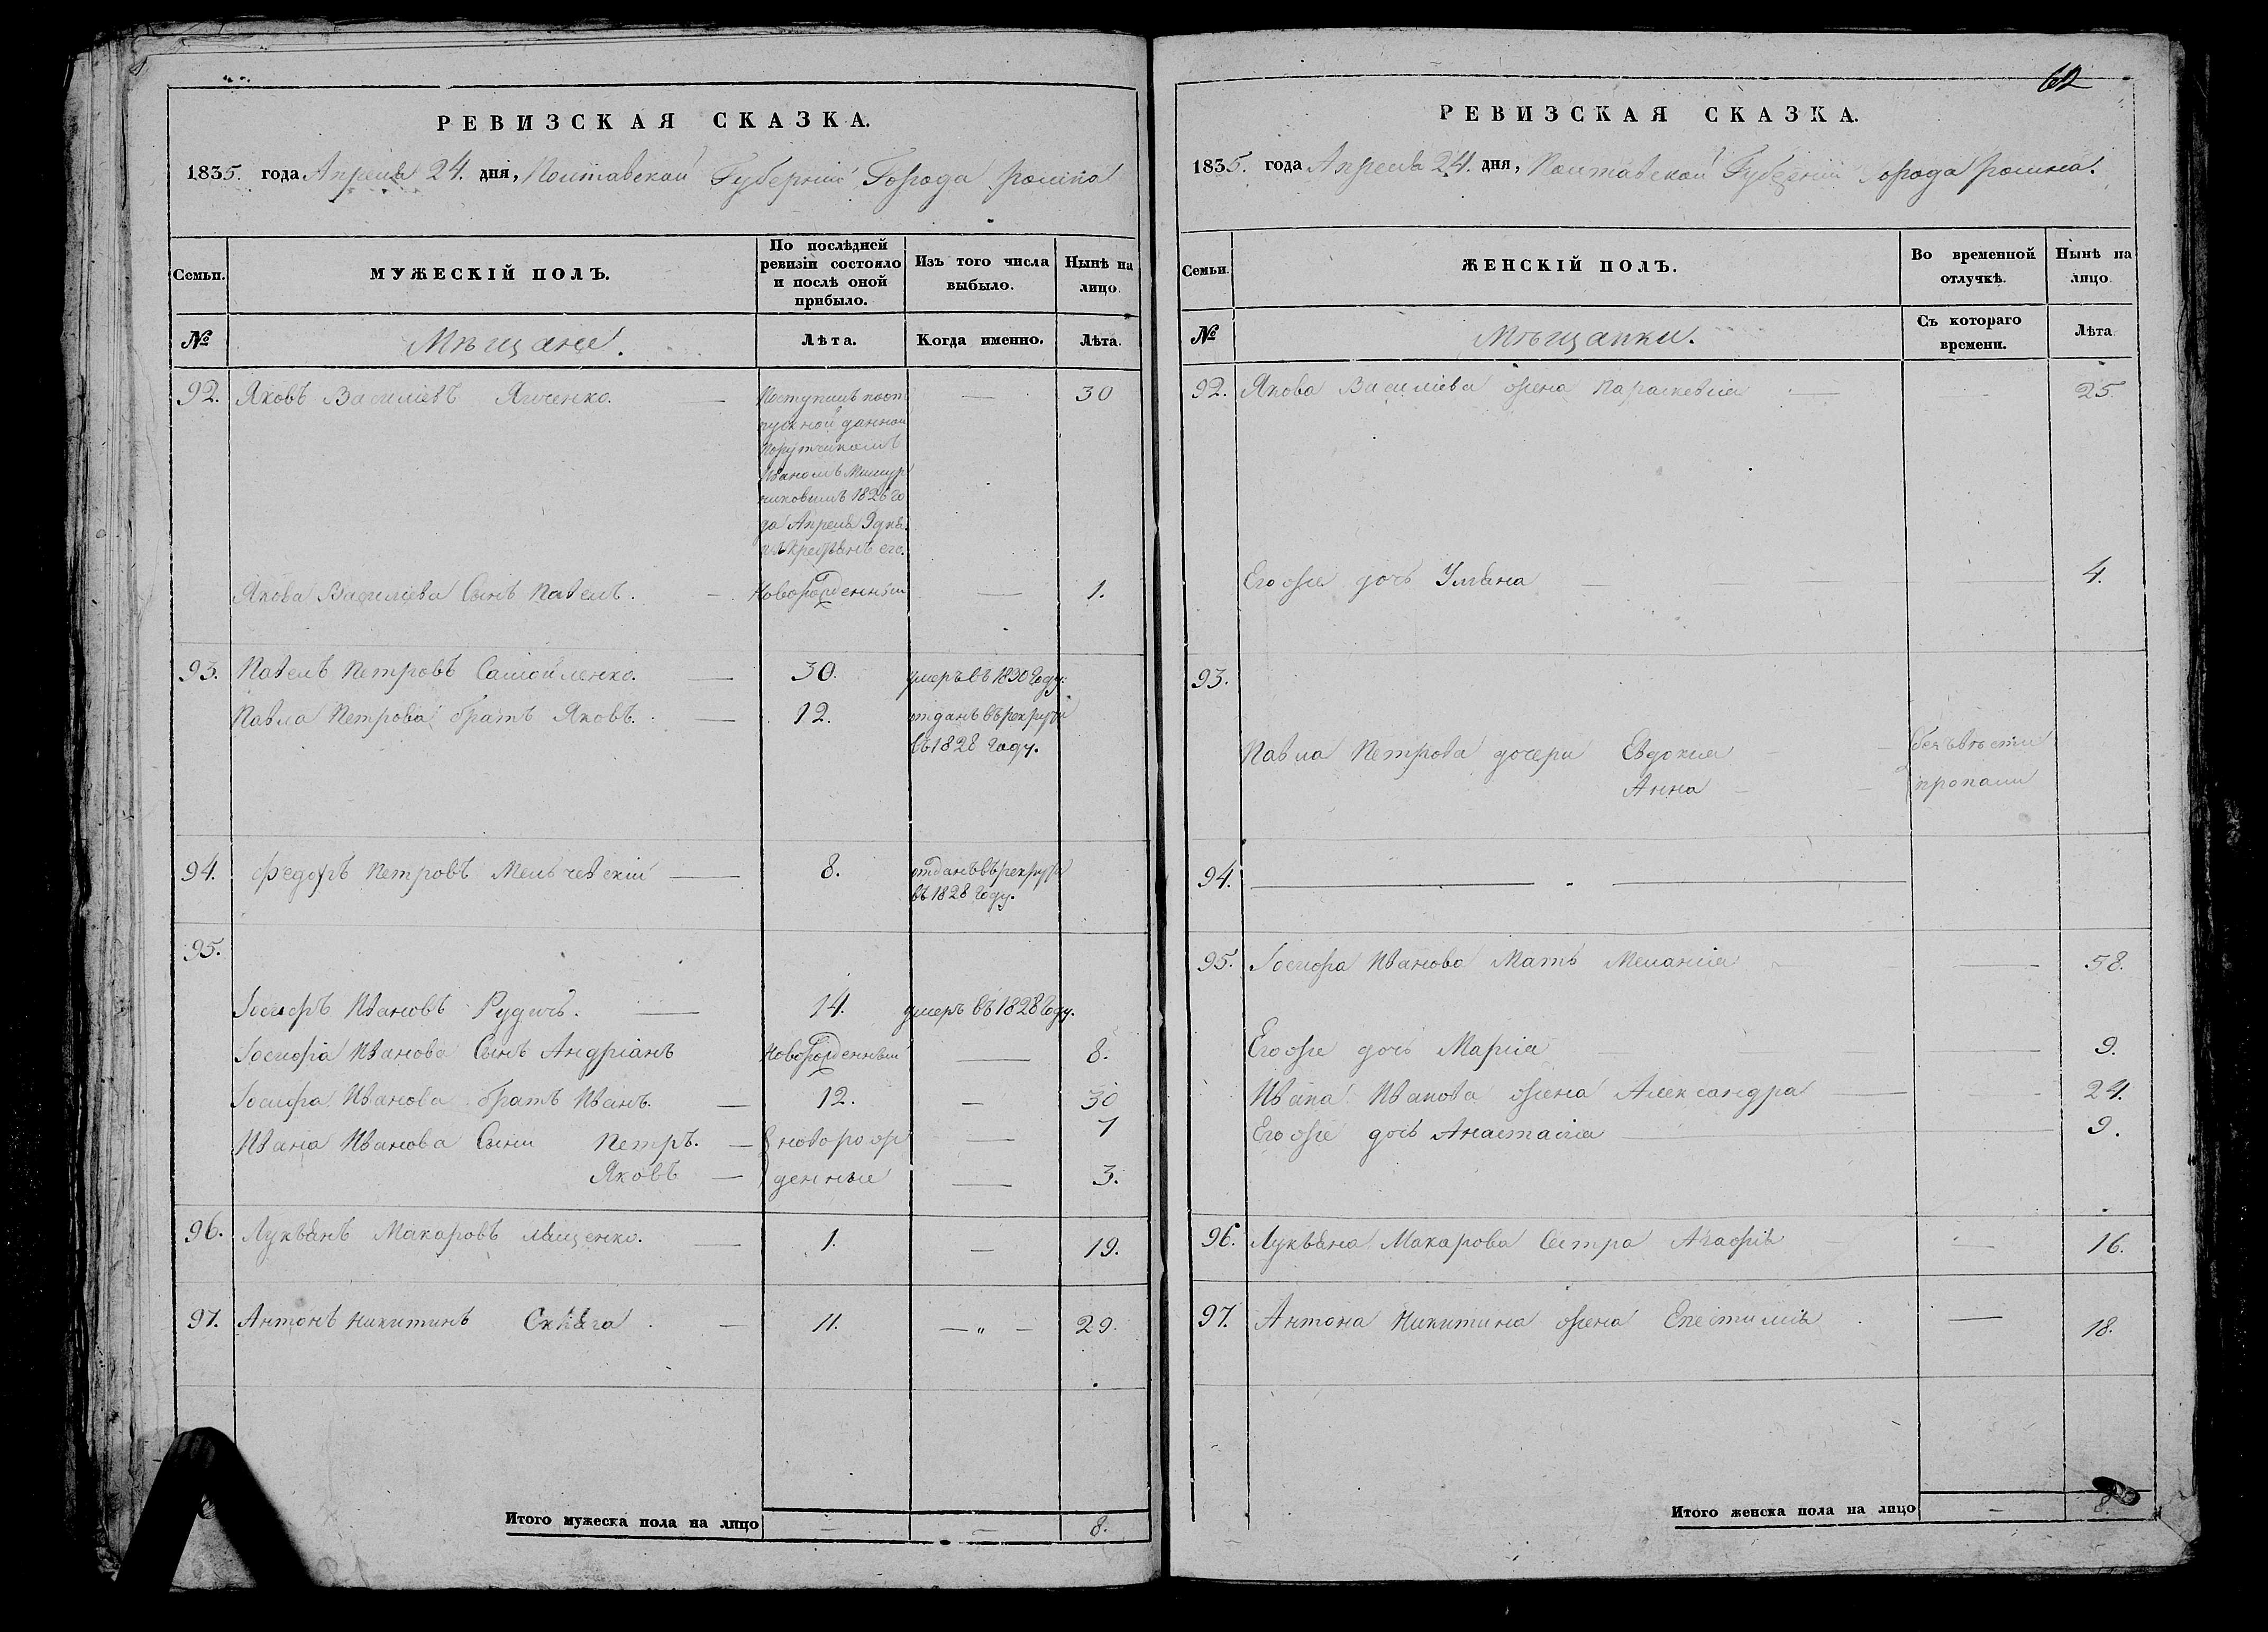 РЕВИЗСКАЯ СКАЗКА.
1835. года Апреля 24. дня, Полтавской Губернии Города Ромна
Семьи. МУЖЕСКІЙ ПОЛЪ. По послѣдней ревизіи состояло и послѣ оной прибыло. Изъ того числа выбыло. Нынѣ на лицо.
№ Мѣщане. Лѣта. Когда именно. Лѣта.
92. Яковъ Василіевъ — Поступилъ по от — 30
пускной данной
Порутчикомъ
Иваномъ
1826 го
да Апреля 9 дня
его.
Якова Василіева Сынъ Павелъ. — Новорожденный — 1.
93. Павелъ Петровъ Самойленко. — 30. умеръ въ 1830 Году.
Павла Петрова братъ Яковъ. — 12. отданъ въ рекруты
въ 1828 Году.
94. Федоръ Петровъ — 8. отданъ въ рекруты
въ 1828 Году.
95.
Іосифъ Ивановъ Рудичъ. — 14. умеръ въ 1828 Году.
Іосифа Иванова Сынъ Андріанъ Новорожденный — 8.
Іосифа Иванова братъ Иванъ. — 12. — 30
Ивана Иванова Сыни Петръ. — новорож — 7
Яковъ — денные — 3.
96. Лукьянъ Макаровъ — 1. — 19.
97. Антонъ Никитинъ — 11. — „ — 29.
Итого мужеска пола на лицо — — 8.
62
РЕВИЗСКАЯ СКАЗКА.
1835. года Апреля 24. дня, Полтавской Губернии Города Ромна.
Семьи. ЖЕНСКІЙ ПОЛЪ. Во временной отлучкѣ. Нынѣ на лицо.
№ Мѣщанки. Съ котораго времени. Лѣта.
92. Якова Василіева жена Параскевія — - 25.
Его же дочь Уляна — 4.
93.
Павла Петрова дочери Евдокия - безъ вѣсти
Анна - пропали
94. — - —
95. Іосифа Иванова Мать Меланія — 58.
Его же дочь Марія — 9.
Ивана Иванова жена Александра — 24.
Его же дочь Анастасія — 9.
96. Лукьяна Макарова Сестра Агафія — 16.
97. Антона Никитина жена Епестимія — 18.
Итого женска пола на лицо — 8.